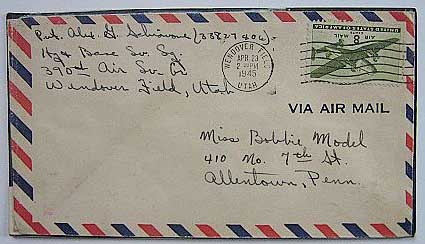 Pvt. Alex. G. (33827406)
164 Base Sv. Sq.
390th Air Sv. Gp
Wendover Field, Utah
WENDOVER FIELD
APR 23
2 PM
1945
UTAH
UNITED STATES OF AMERICA
AIR MAIL
8
VIA AIR MAIL
Miss Bobbie Model
410 No. 7th St.
Allentown, Penn.